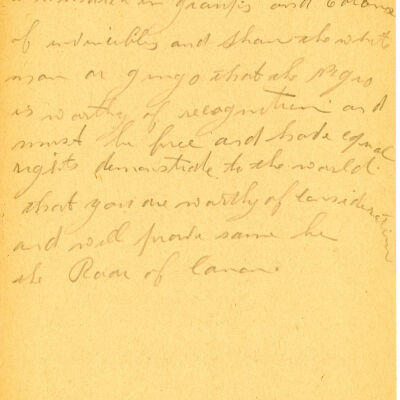 and
of invincibles and show the white
man or gingo that the Negro
is worthy of recognition and
must be free and have equal
rights demonstrate to the world
that you are worthy of consideration
and will prove same by
the Roar of Canon